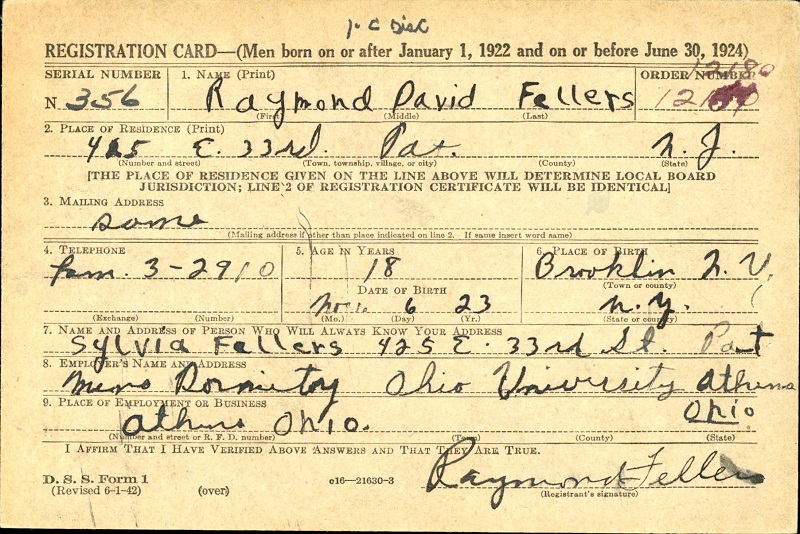 1-C Disc
REGISTRATION CARD—(Men born on or after January 1, 1922 and on or before June 30, 1924)
SERIAL NUMBER 1. NAME (Print) ORDER NUMBER
12180
N 356 Raymond David Fellers
(First) (Middle) (Last)
2. PLACE OF RESIDENCE (Print)
425 E. 33rd. Pat. N. J.
(Number and street) (Town, township, village, or city) (County) (State)
[THE PLACE OF RESIDENCE GIVEN ON THE LINE ABOVE WILL DETERMINE LOCAL BOARD
JURISDICTION; LINE 2 OF REGISTRATION CERTIFICATE WILL BE IDENTICAL]
3. MAILING ADDRESS
same
(Mailing address if other than place indicated on line 2. If same insert word same)
4. TELEPHONE 5. AGE IN YEARS 6. PLACE OF BIRTH
3-2910 18 Brooklin N. Y.
(Town or county)
DATE OF BIRTH
Nov. 6 23 N.Y.
(Exchange) (Number) (Mo.) (Day) (Yr.) (State or country)
7. NAME AND ADDRESS OF PERSON WHO WILL ALWAYS KNOW YOUR ADDRESS
Sylvia Fellers 425 E. 33rd St. Pat
8. EMPLOYER'S NAME AND ADDRESS
Mens Dormitory Ohio University Athens
Ohio
9. PLACE OF EMPLOYMENT OR BUSINESS
Athens Ohio.
(Number and street or R. F. D. number) (Town) (County) (State)
I AFFIRM THAT I HAVE VERIFIED ABOVE ANSWERS AND THAT THEY ARE TRUE.
Raymond Fellers
D. S. S. Form 1
(Revised 6-1-42) (over) c16—21630-3 (Registrant's signature)